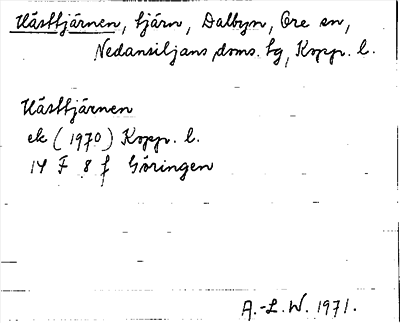 Hästtjärnen, tjärn, Dalbyn, Ore sn,
Nedansiljans doms. tg, Kopp. l.
Hästtjärnen
ek (1970) Kopp. l.
14 F 8 f Göringen
A.-L. W. 1971.